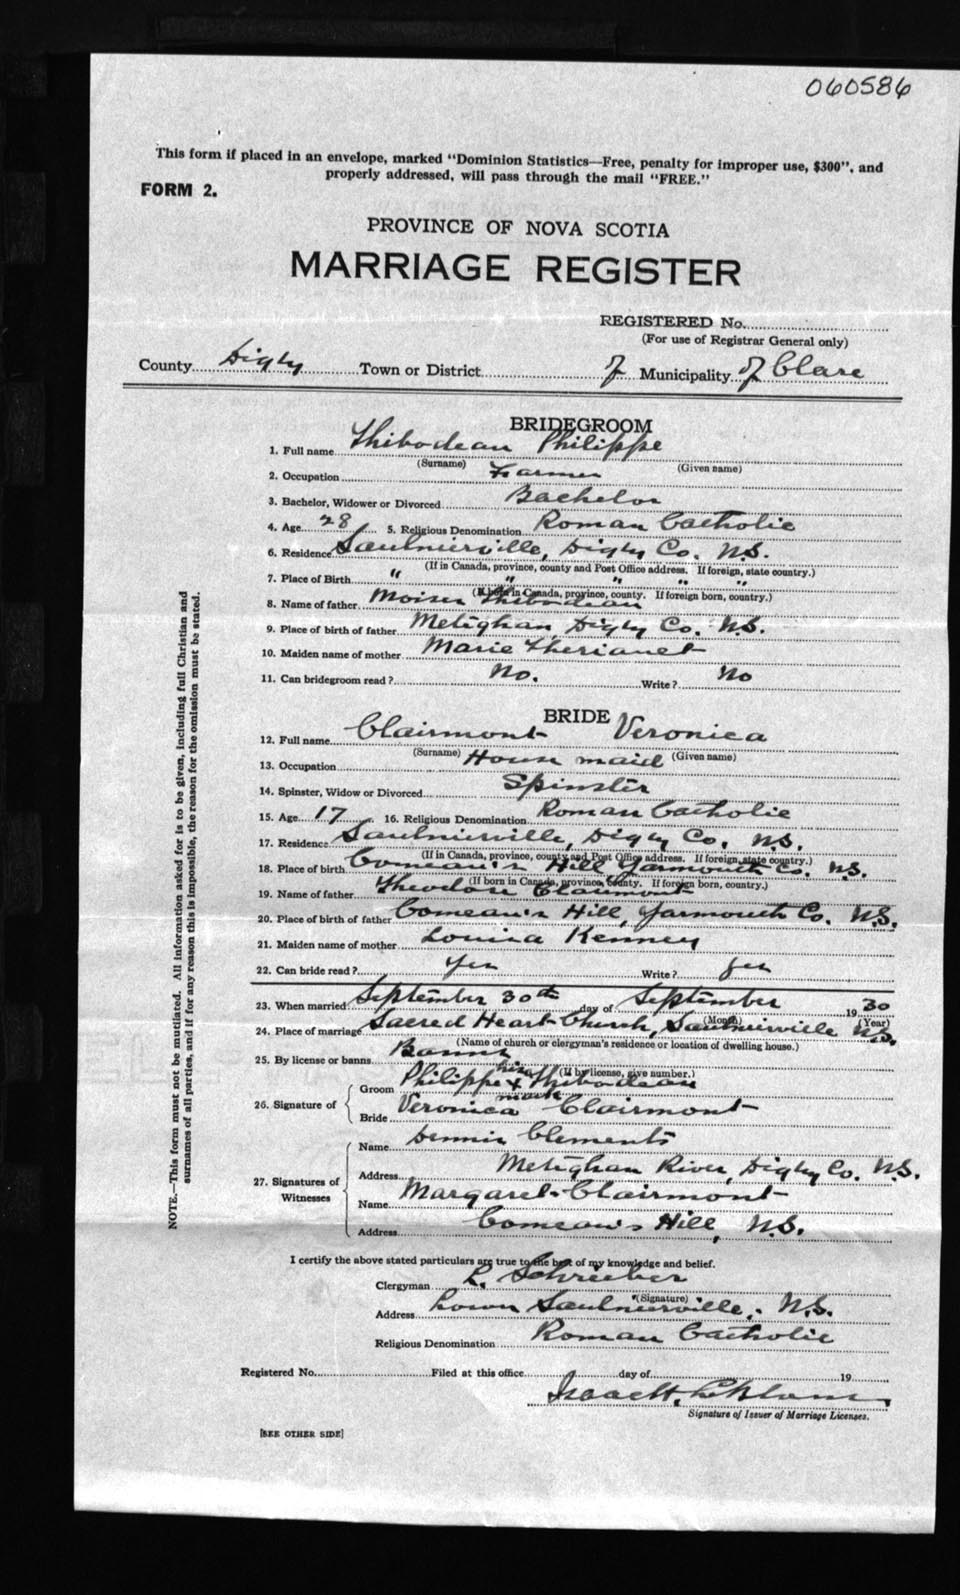 060586
This form if placed in an envelope, marked "Dominion Statistics—Free, penalty for improper use, $300", and
properly addressed, will pass through the mail "FREE."
FORM 2.
PROVINCE OF NOVA SCOTIA
MARRIAGE REGISTER
REGISTERED No.
(For use of Registrar General only)
County Digby Town or District of Municipality of Clare
BRIDEGROOM
1. Full name Thibodeau Philippe
(Surname) (Given name)
2. Occupation Farmer
3. Bachelor, Widower or Divorced Bachelor
4. Age 28 5. Religious Denomination Roman Catholic
6. Residence Saulnierville, Digby Co. N.S.
(If in Canada, province, county and Post Office address. If foreign, state country.)
7. Place of Birth " " " " "
(If born in Canada, province, county. If foreign born, country.)
8. Name of father Moise Thibodeau
9. Place of birth of father Metighan Digby Co. N.S.
10. Maiden name of mother Marie
11. Can bridegroom read? No. Write? No
BRIDE
12. Full name Clairmont Veronica
(Surname) (Given name)
13. Occupation House maid
14. Spinster, Widow or Divorced Spinster
15. Age 17 16. Religious Denomination Roman Catholic
17. Residence Saulnierville, Digby Co. N.S.
(If in Canada, province, county and Post Office address. If foreign, state country.)
18. Place of birth Comeau's Hill Yarmouth Co. N.S.
(If born in Canada, province, county. If foreign born, country.)
19. Name of father Theodose Clairmont
20. Place of birth of father Comeau's Hill, Yarmouth Co. N.S.
21. Maiden name of mother Louisa Kenney
22. Can bride read? Yes Write? Yes
23. When married September 30th day of September 1930
(Month) (Year)
24. Place of marriage Sacred Heart Church, Saulnierville N.S.
(Name of church or clergyman's residence or location of dwelling house.)
25. By license or banns Banns
(If by license, give number.)
his
26. Signature of Groom Philippe x Thibodeau
mark
Bride Veronica Clairmont
27. Signatures of Witnesses Name Dennis Clements
Address Metighan River, Digby Co. N.S.
Name Margaret Clairmont
Address Comeau's Hill, N.S.
I certify the above stated particulars are true to the best of my knowledge and belief.
Clergyman L. Schreiber
(Signature)
Address Lower Saulnierville, N.S.
Religious Denomination Roman Catholic
Registered No. Filed at this office day of 19
Isaac H.
Signature of Issuer of Marriage Licenses.
[SEE OTHER SIDE]
NOTE.—This form must not be mutilated. All information asked for is to be given, including full Christian and
surnames of all parties, and if for any reason this is impossible, the reason for the omission must be stated.